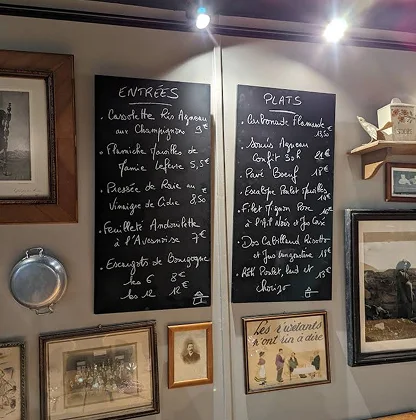 ENTRÉES
. Cassolette Ris Agneau
aux Champignons 9€
. Flamiche Maroilles de
Mamie Lefevre 5,5€
. Pressée de Raie au
Vinaigre de Cidre 8,50€
. Feuilleté Andouillette
à l'Avesnoise 7€
. Escargots de Bourgogne
les 6 8€
les 12 12€
PLATS
. Carbonade Flamande
13,50€
. Souris Agneau
Confit 30h
. Pavé Boeuf 18€
. Escalope Poulet Maroilles
. Filet Mignon Porc
à l'Ail Noir et Jus Corsé
. Dos Cabillaud Risotto
et Jus Langoustine 18€
. Rôti Poulet, lard et
chorizo 15€
Les r'wétants
n'ont rin à dire